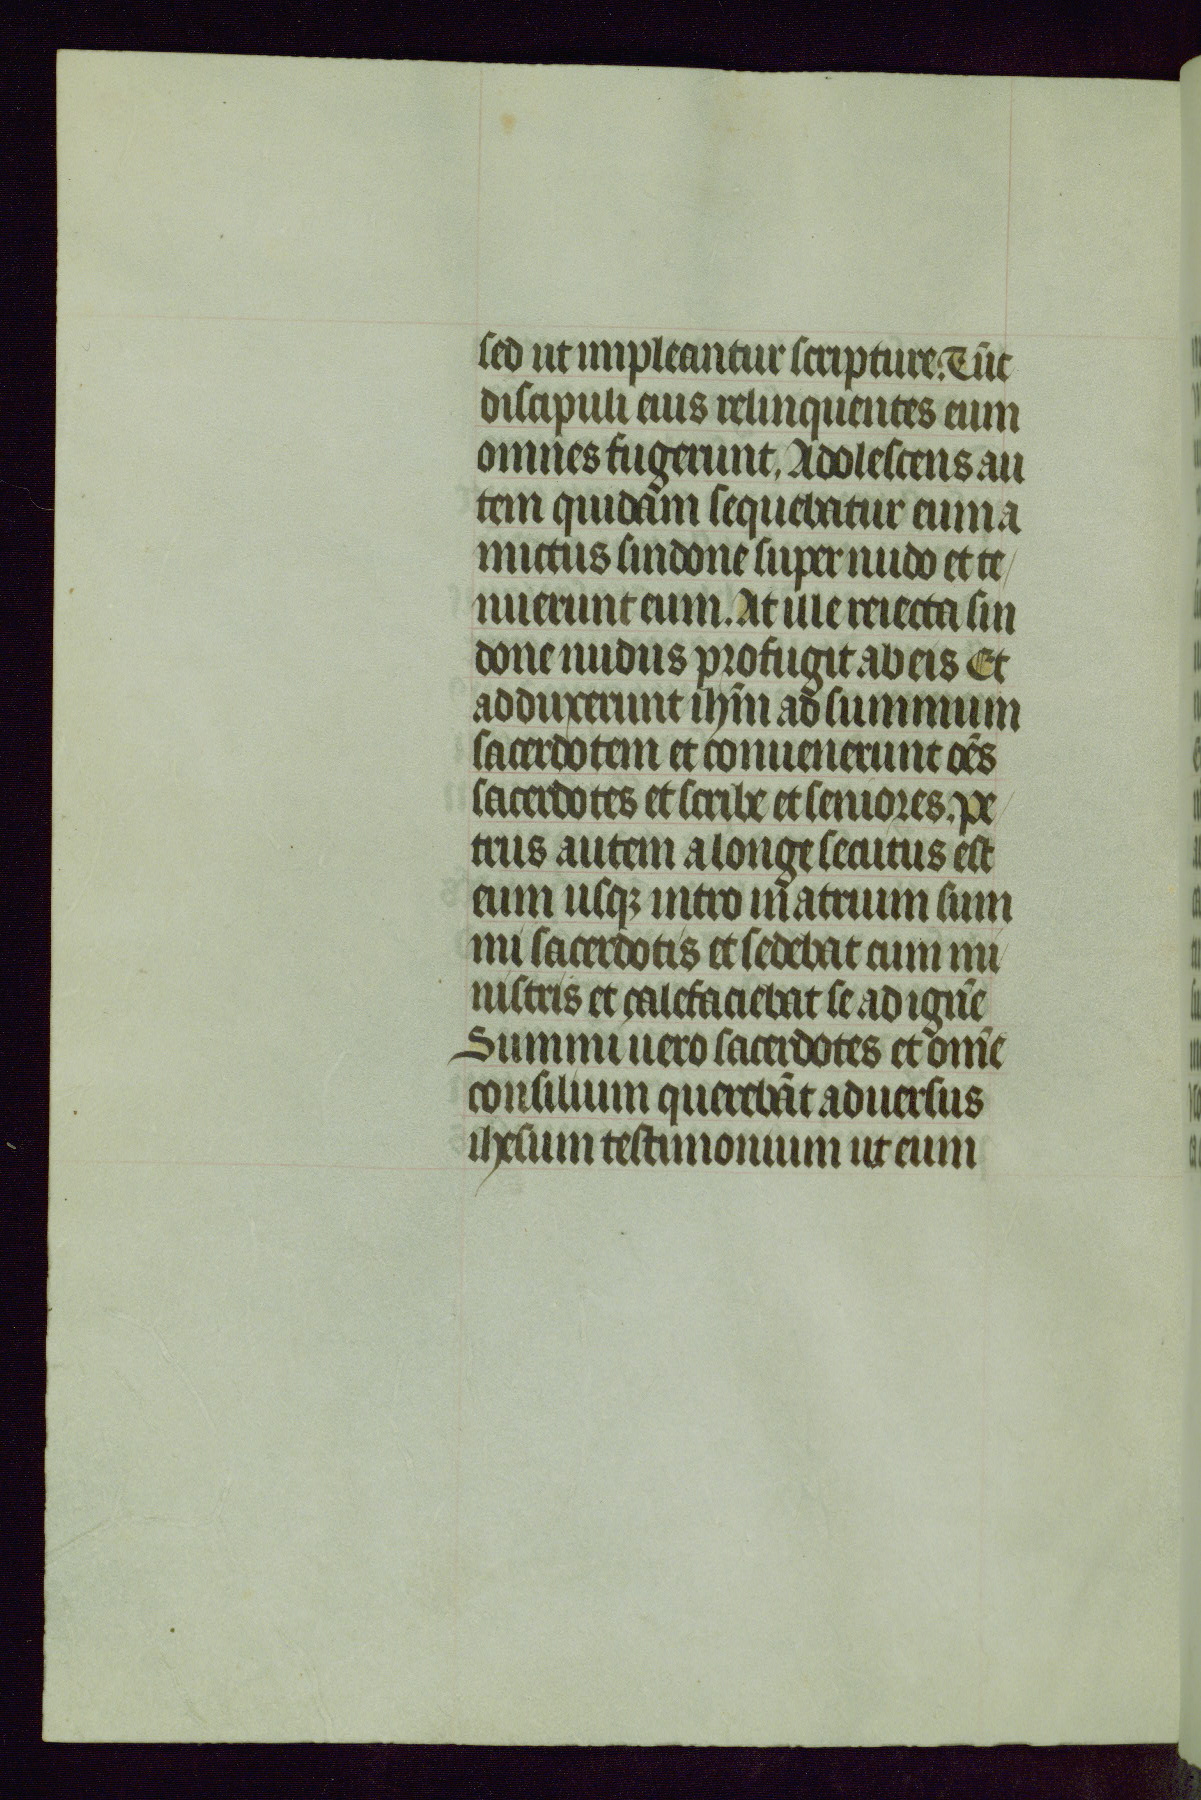 sed ut impleantur scripture. Tūc
discipuli eius relinquentes eum
omnes fugerunt. Adolescens au
tem quidam̄ sequebatur eum a
mictus sindone super nudo et te/
nuerunt eum. At ille reiecta sin
done nudus profugit ab eis Et
adduxerunt ihm̄ ad summum
sacerdotem et conuenerunt oēs
sacerdotes et scribe et seniores. pe/
trus autem a longe secutus est
eum usqꝫ intro in atrium sum
mi sacerdotis et sedebat cum mi
nistris et calefaciebat se ad ignē
Summi uero sacerdotes et omē
consilium querebāt aduersus
ihesum testimonium ut eum